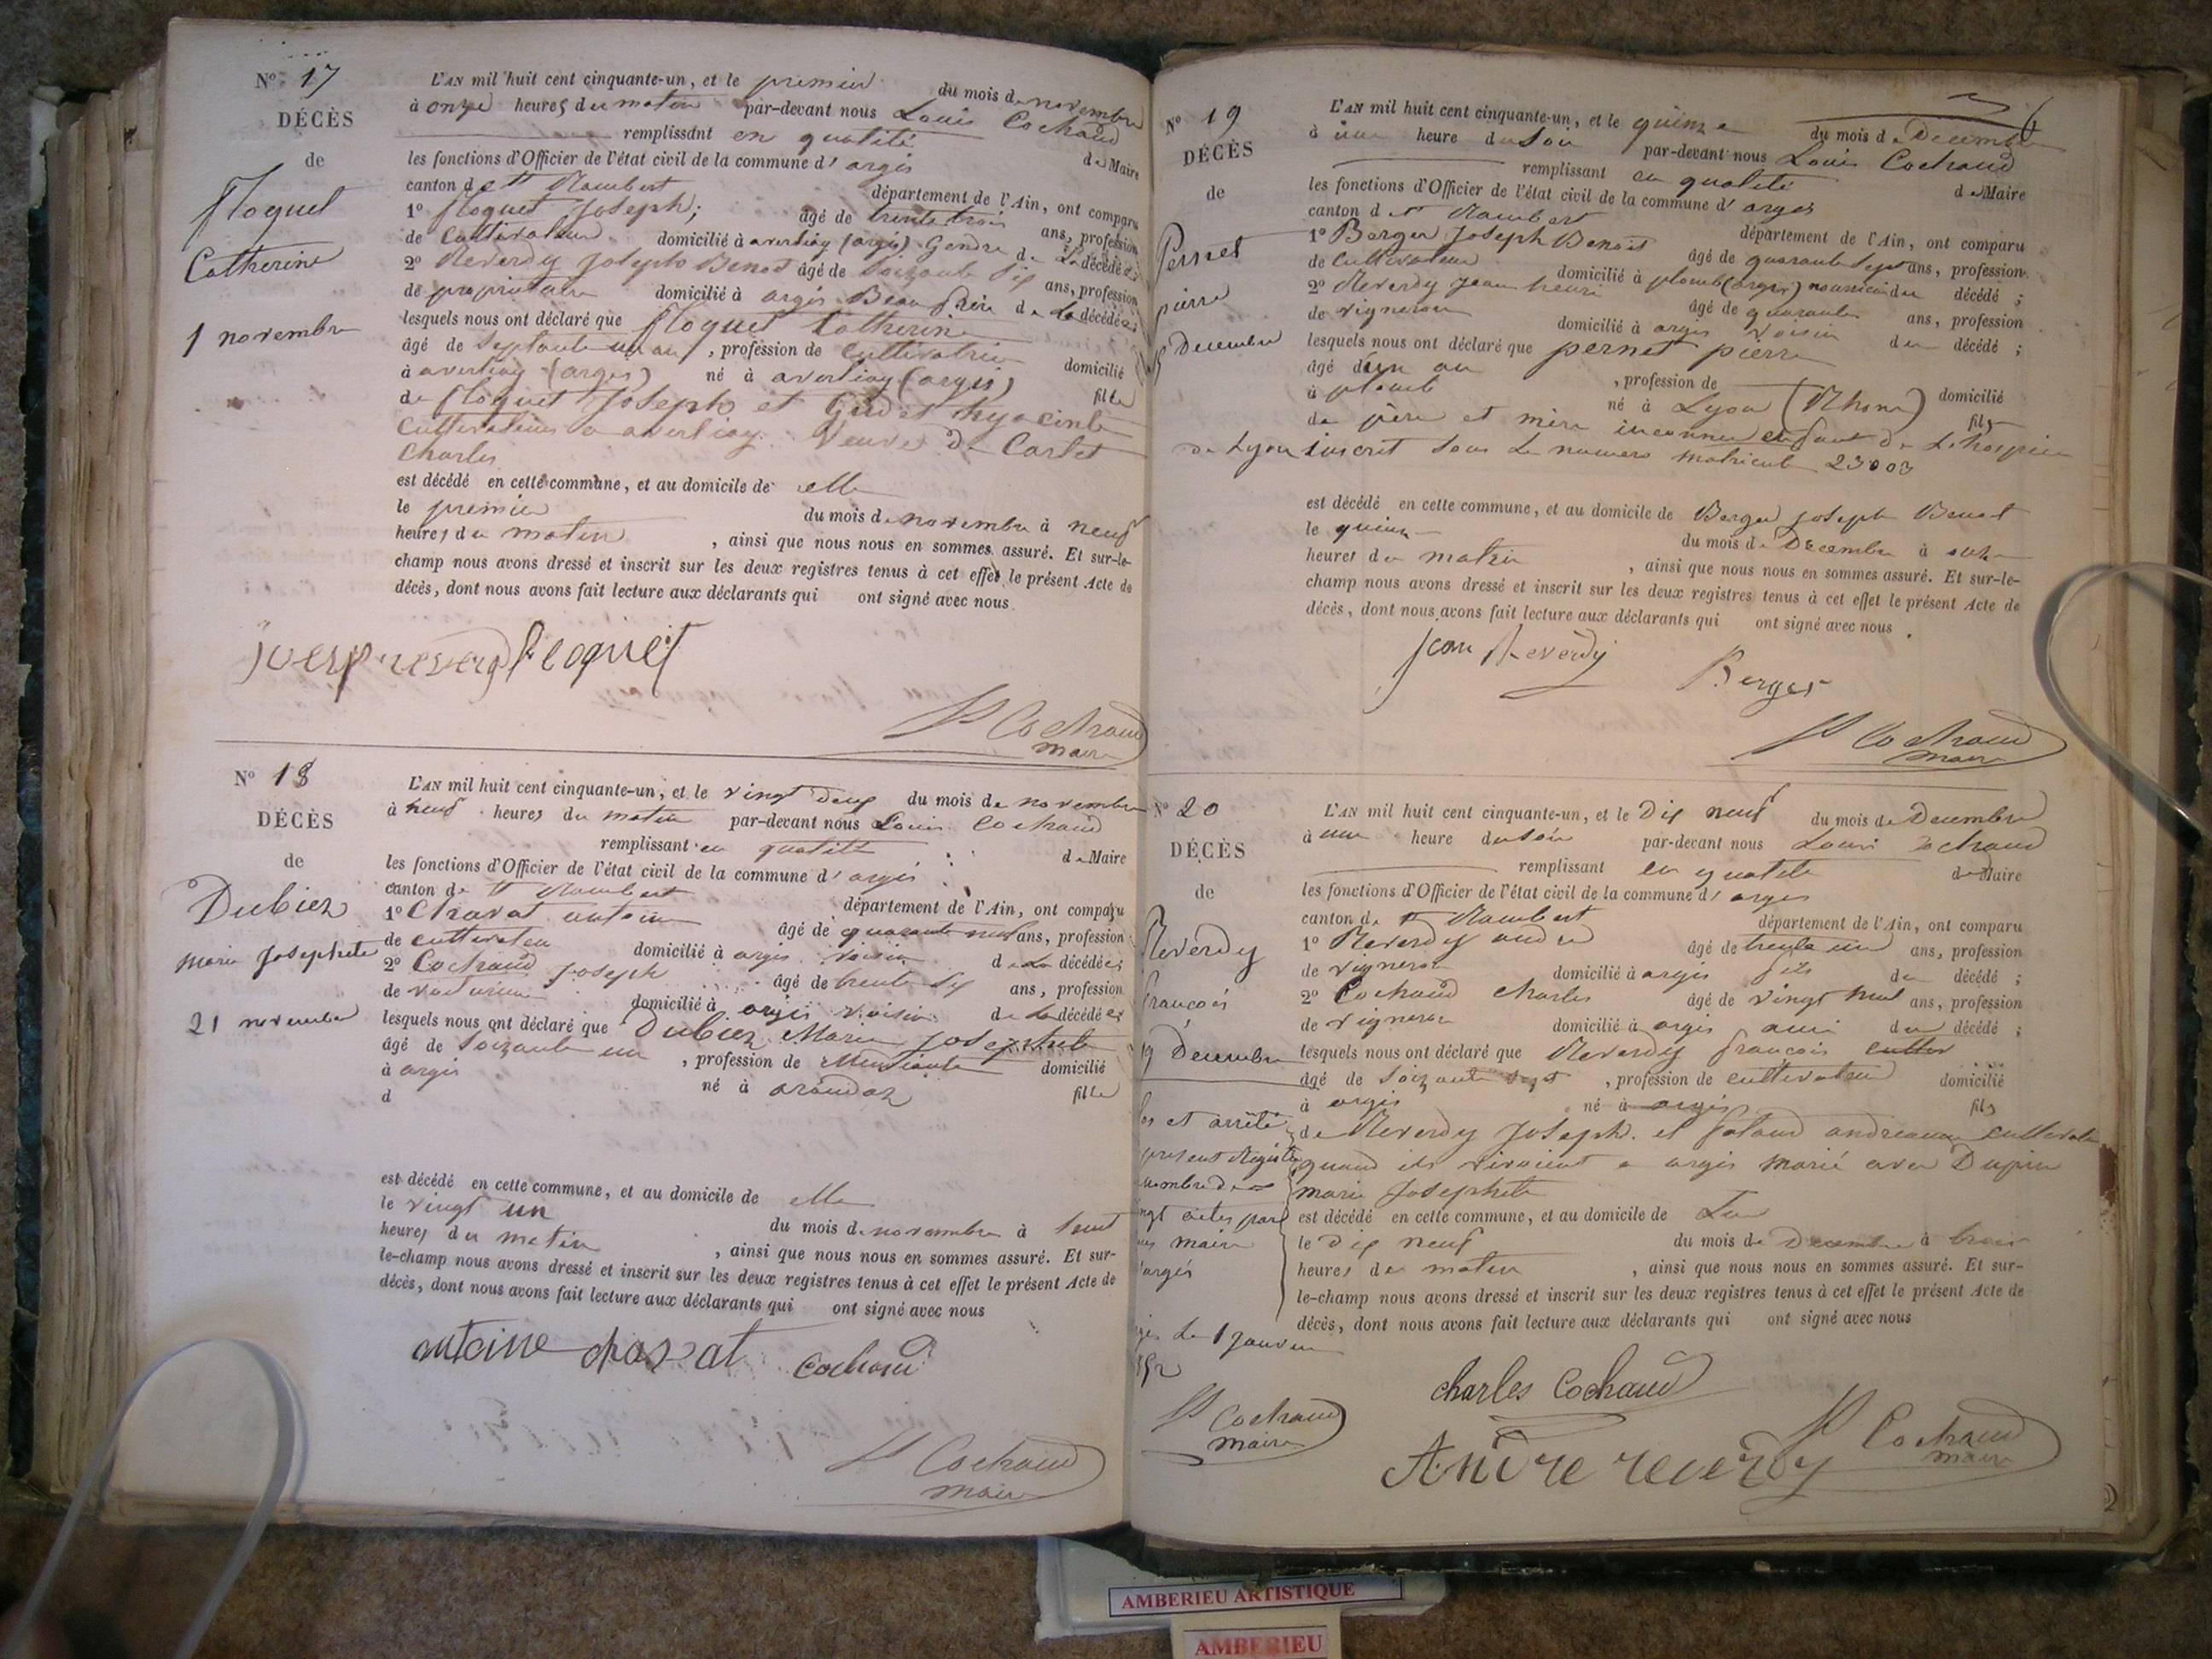 Nº 17
DÉCÈS
de
floquet
Catherine
1 novembre
L'AN mil huit cent cinquante-un, et le premier du mois de novembre
à onze heures du matin par-devant nous Louis Cochaud
remplissant en qualité de Maire
les fonctions d'Officier de l'état civil de la commune d'argis
canton de St Rambert département de l'Ain, ont comparu
1º floquet Joseph; âgé de trente trois ans, profession
de cultivateur domicilié à averliaz (argis) Gendre de La décédée;
2º Reverdy Joseph Benoit âgé de Soixante Six ans, profession
de propriétaire domicilié à argis Beau frère de La décédée;
lesquels nous ont déclaré que floquet Catherine
âgé de Septante un an, profession de cultivatrice domicilié
à averliaz (argis) né à averliaz (argis) fille
de floquet Joseph et Gudet hyacinte
Cultivateurs a averliaz. Veuve De Carlet
Charles
est décédé en cette commune, et au domicile de elle
le premier du mois de novembre à neuf
heures du matin, ainsi que nous nous en sommes assuré. Et sur-le-
champ nous avons dressé et inscrit sur les deux registres tenus à cet effet le présent Acte de
décès, dont nous avons fait lecture aux déclarants qui ont signé avec nous.
floquet
Cochaud
maire
Nº 18
DÉCÈS
de
Dubiez
Marie Josephete
21 novembre
L'AN mil huit cent cinquante-un, et le vingt deux du mois de novembre
à neuf heures du matin par-devant nous Louis Cochaud
remplissant en qualité de Maire
les fonctions d'Officier de l'état civil de la commune d'argis
canton de St Rambert département de l'Ain, ont comparu
1º Charvat antoine âgé de quarante neuf ans, profession
de cultivateur domicilié à argis voisin de La décédée;
2º Cochaud Joseph âgé de trente Six ans, profession
de voiturier domicilié à argis voisin de La décédée;
lesquels nous ont déclaré que Dubiez Marie Josephete
âgé de Soixante un, profession de Mendiante domicilié
à argis né à arandaz fille
d
est décédé en cette commune, et au domicile de elle
le vingt un du mois de novembre à huit
heures du matin, ainsi que nous nous en sommes assuré. Et sur-
le-champ nous avons dressé et inscrit sur les deux registres tenus à cet effet le présent Acte de
décès, dont nous avons fait lecture aux déclarants qui ont signé avec nous
antoine charvat Cochaud
Cochaud
maire
Nº 19
DÉCÈS
de
Pernet
pierre
15 Decembre
L'AN mil huit cent cinquante-un, et le quinze du mois de Decembre
à une heure du soir par-devant nous Louis Cochaud
remplissant en qualité de Maire
les fonctions d'Officier de l'état civil de la commune d'argis
canton de St Rambert département de l'Ain, ont comparu
1º Berger Joseph Benoit âgé de quarante Sept ans, profession
de cultivateur domicilié à plomb (argis) nourricier du décédé;
2º Reverdy Jean henri âgé de quarante ans, profession
de vigneron domicilié à argis voisin du décédé;
lesquels nous ont déclaré que pernet pierre
âgé d'un an, profession de domicilié
à plomb né à Lyon (Rhone) fils
de père et mère inconnu enfant de L'hospice
de Lyon inscrit Sous Le numero matricule 23003
est décédé en cette commune, et au domicile de Berger Joseph Benoit
le quinze du mois de Decembre à onze
heures du matin, ainsi que nous nous en sommes assuré. Et sur-le-
champ nous avons dressé et inscrit sur les deux registres tenus à cet effet le présent Acte de
décès, dont nous avons fait lecture aux déclarants qui ont signé avec nous.
Jean Reverdy
Berger
Cochaud
maire
Nº 20
DÉCÈS
de
Reverdy
françois
19 Decembre
L'AN mil huit cent cinquante-un, et le Dix neuf du mois de Decembre
à une heure du soir par-devant nous Louis Cochaud
remplissant en qualité de Maire
les fonctions d'Officier de l'état civil de la commune d'argis
canton de St Rambert département de l'Ain, ont comparu
1º Reverdy andré âgé de trente un ans, profession
de vigneron domicilié à argis fils du décédé;
2º Cochaud Charles âgé de vingt huit ans, profession
de vigneron domicilié à argis ami du décédé;
lesquels nous ont déclaré que Reverdy françois cultiv
âgé de Soixante Sept, profession de cultivateur domicilié
à argis né à argis fils
de Reverdy Joseph. et andreanne cultivateurs
quand ils vivaient a argis marié avec Dupin
marie Josephete
est décédé en cette commune, et au domicile de Lui
le Dix neuf du mois de Decembre à trois
heures du matin, ainsi que nous nous en sommes assuré. Et sur-
le-champ nous avons dressé et inscrit sur les deux registres tenus à cet effet le présent Acte de
décès, dont nous avons fait lecture aux déclarants qui ont signé avec nous
los et arrêté
present Registre
nombre de
ngt actes par
maire
d'argis
Le 1 janvier
52
Cochaud
maire
charles Cochaud
Andre reverdy
Cochaud
maire
AMBERIEU ARTISTIQUE
AMBERIEU